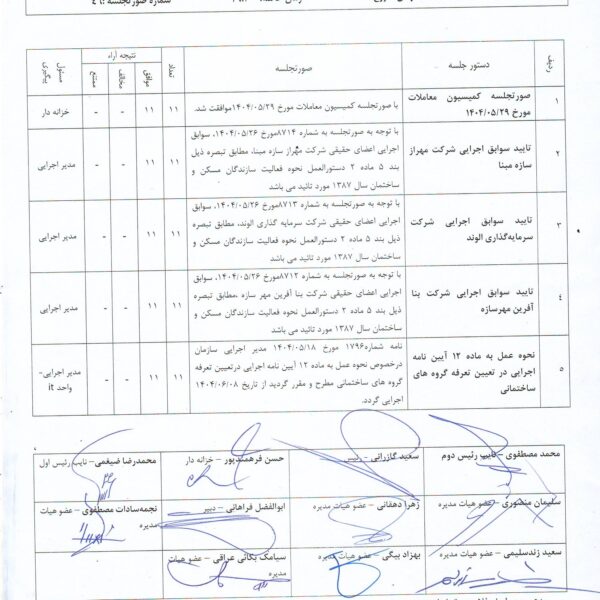 شماره صورتجلسه :٤٦
ردیف
دستور جلسه
صورتجلسه
تعداد
نتیجه آراء
موافق
مخالف
ممتنع
مسئول پیگیری
۱
صورتجلسه کمیسیون معاملات
مورخ ۱۴۰۴/۰۵/۲۹
با صورتجلسه کمیسیون معاملات مورخ ۱۴۰۴/۰۵/۲۹موافقت شد.
۱۱
۱۱
-
-
خزانه دار
۲
تایید سوابق اجرایی شرکت مهراز
سازه مبنا
با توجه به صورتجلسه به شماره ۸۷۱۴مورخ ۱۴۰۴/۰۵/۲۶، سوابق
اجرایی اعضای حقیقی شرکت مهراز سازه مبنا، مطابق تبصره ذیل
بند ۵ ماده ۲ دستورالعمل نحوه فعالیت سازندگان مسکن و
ساختمان سال ۱۳۸۷ مورد تائید می باشد
۱۱
۱۱
-
-
مدیر اجرایی
۳
تایید سوابق اجرایی شرکت
سرمایه‌گذاری الوند
با توجه به صورتجلسه به شماره ۸۷۱۳مورخ ۱۴۰۴/۰۵/۲۶، سوابق
اجرایی اعضای حقیقی شرکت سرمایه گذاری الوند، مطابق تبصره
ذیل بند ۵ ماده ۲ دستورالعمل نحوه فعالیت سازندگان مسکن و
ساختمان سال ۱۳۸۷ مورد تائید می باشد
۱۱
۱۱
-
-
مدیر اجرایی
۴
تایید سوابق اجرایی شرکت بنا
آفرین مهرسازه
با توجه به صورتجلسه به شماره ۸۷۱۲مورخ ۱۴۰۴/۰۵/۲۶، سوابق
اجرایی اعضای حقیقی شرکت بنا آفرین مهر سازه ،مطابق تبصره
ذیل بند ۵ ماده ۲ دستورالعمل نحوه فعالیت سازندگان مسکن و
ساختمان سال ۱۳۸۷ مورد تائید می باشد
۱۱
۱۱
-
-
مدیر اجرایی
۵
نحوه عمل به ماده ۱۲ آیین نامه
اجرایی در تعیین تعرفه گروه های
ساختمانی
نامه شماره۱۷۹۶ مورخ ۱۴۰۴/۰۵/۱۸ مدیر اجرایی سازمان
درخصوص نحوه عمل به ماده ۱۲ آیین نامه اجرایی درتعیین تعرفه
گروه های ساختمانی مطرح و مقرر گردید از تاریخ ۱۴۰۴/۰۶/۰۸
اجرایی گردد.
۱۱
۱۱
-
-
مدیر اجرایی-
واحد it
محمد مصطفوی – نایب رئیس دوم
سعید گازرانی – رئیس
حسن فرهمندپور – خزانه دار
محمدرضا ضیغمی – نایب رئیس اول
سلیمان منصوری – عضو هیات مدیره
زهرا دهقانی – عضو هیات مدیره
ابوالفضل فراهانی – دبیر
نجمه‌سادات مصطفوی – عضو هیات
مدیره
سعید زندسلیمی – عضو هیات مدیره
بهزاد بیگی – عضو هیات مدیره
سیامک بکائی عراقی – عضو هیات
مدیره